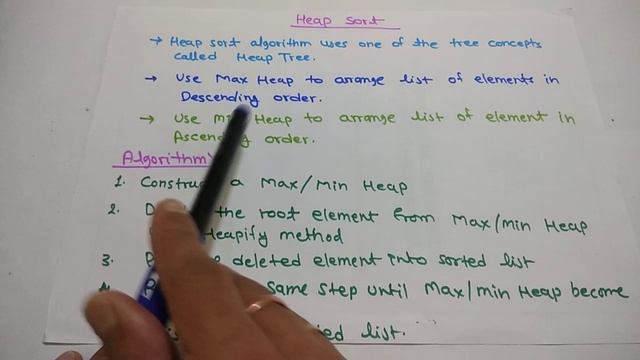 Heap sort
→ Heap sort algorithm uses one of the tree concepts
called Heap Tree.
→ Use Max Heap to arrange list of elements in
Descending order.
→ Use Heap to arrange list of element in
Ascending order.
Algorithm
1. Construct a Max/Min Heap
2. the root element from Max/min Heap
Heapify method
3. deleted element into sorted list
same step until Max/min Heap become
list.